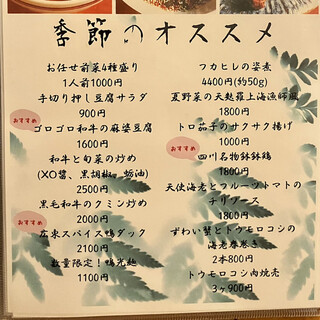 季節のオススメ
お任せ前菜4種盛り
1人前1000円
手切り押し豆腐サラダ
900円
おすすめ
ゴロゴロ和牛の麻婆豆腐
1600円
和牛と旬菜の炒め
(XO醤、黒胡椒、蚝油)
2500円
黒毛和牛のクミン炒め
2000円
おすすめ
広東スパイス鴨ダック
2100円
数量限定!鴨光麺
1100円
フカヒレの姿煮
4400円(約50g)
夏野菜の天麩羅上海漁師風
1800円
トロ茄子のサクサク揚げ
1000円
おすすめ
四川名物鉢鉢鶏
1800円
天使海老とフルーツトマトの
チリソース
1800円
ずわい蟹とトウモロコシの
海老春巻き
2本800円
トウモロコシ肉焼売
3ヶ900円